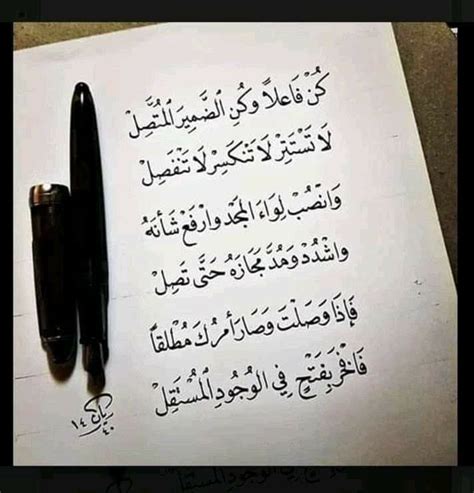 كُنْ فَاعلاً وكُنِ الضَّميرَ المُتَّصِلْ
لَا تَسْتَتِرْ لَا تَنْكَسِرْ لَا تَنْفَصِلْ
وَانْصُبْ لِوَاءَ المَجْدِ وارْفَعْ شَأنَهُ
واشْدُدْ وَمُدَّ مَجَازَهُ حَتَّى تَصِلْ
فَإذَا وَصَلْتَ وَصَارَ أمْرُكَ مُطْلَقاً
فَافْخَرْ بِفَتْحٍ فِي الوُجُودِ المُسْتَقِلْ